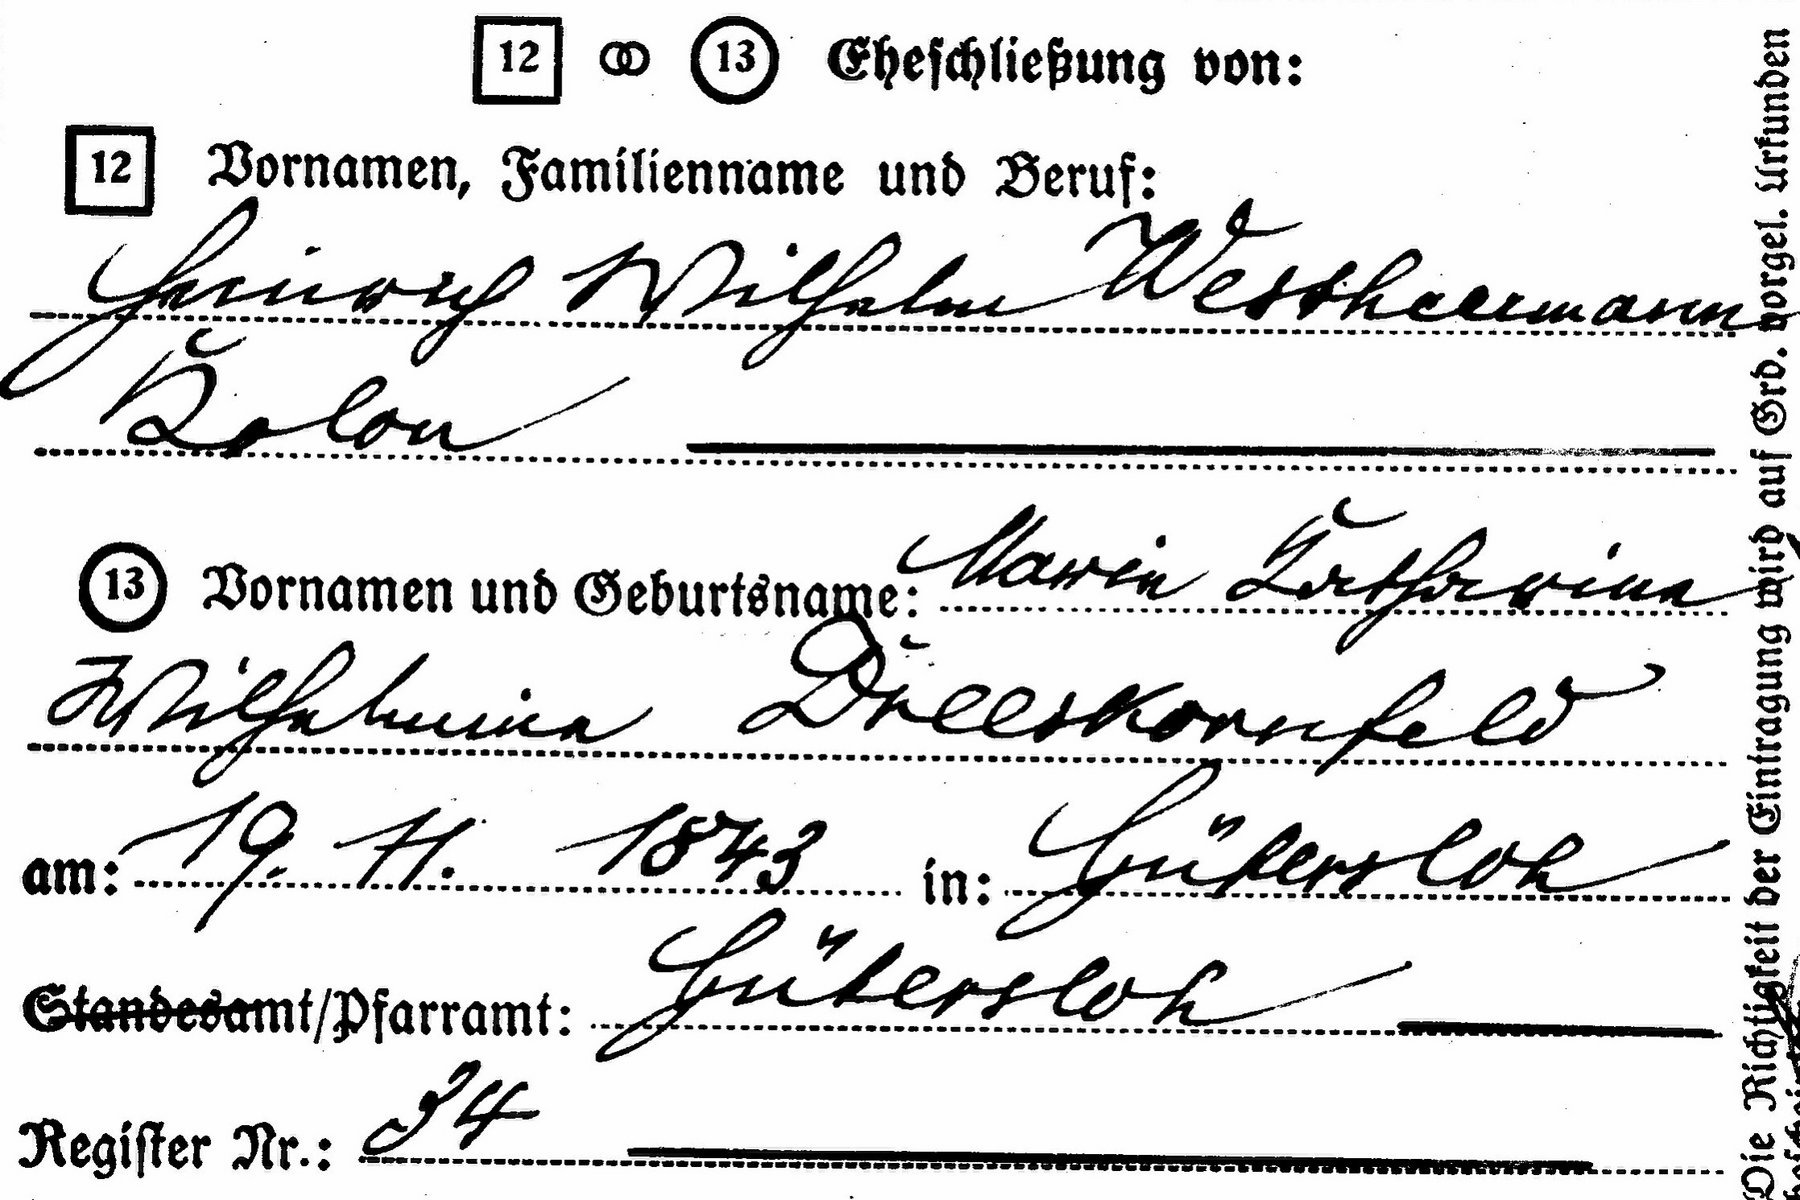 12 ⚭ 13 Eheschließung von:
12 Vornamen, Familienname und Beruf:
Heinrich Wilhelm Westheermann
Kolon
13 Vornamen und Geburtsname: Maria Katharina
Wilhelmina Dreeskornfeld
am: 19. 11. 1843 in: Gütersloh
Standesamt/Pfarramt: Gütersloh
Register Nr.: 34
Die Richtigkeit der Eintragung wird auf Grd. vorgel. Urkunden